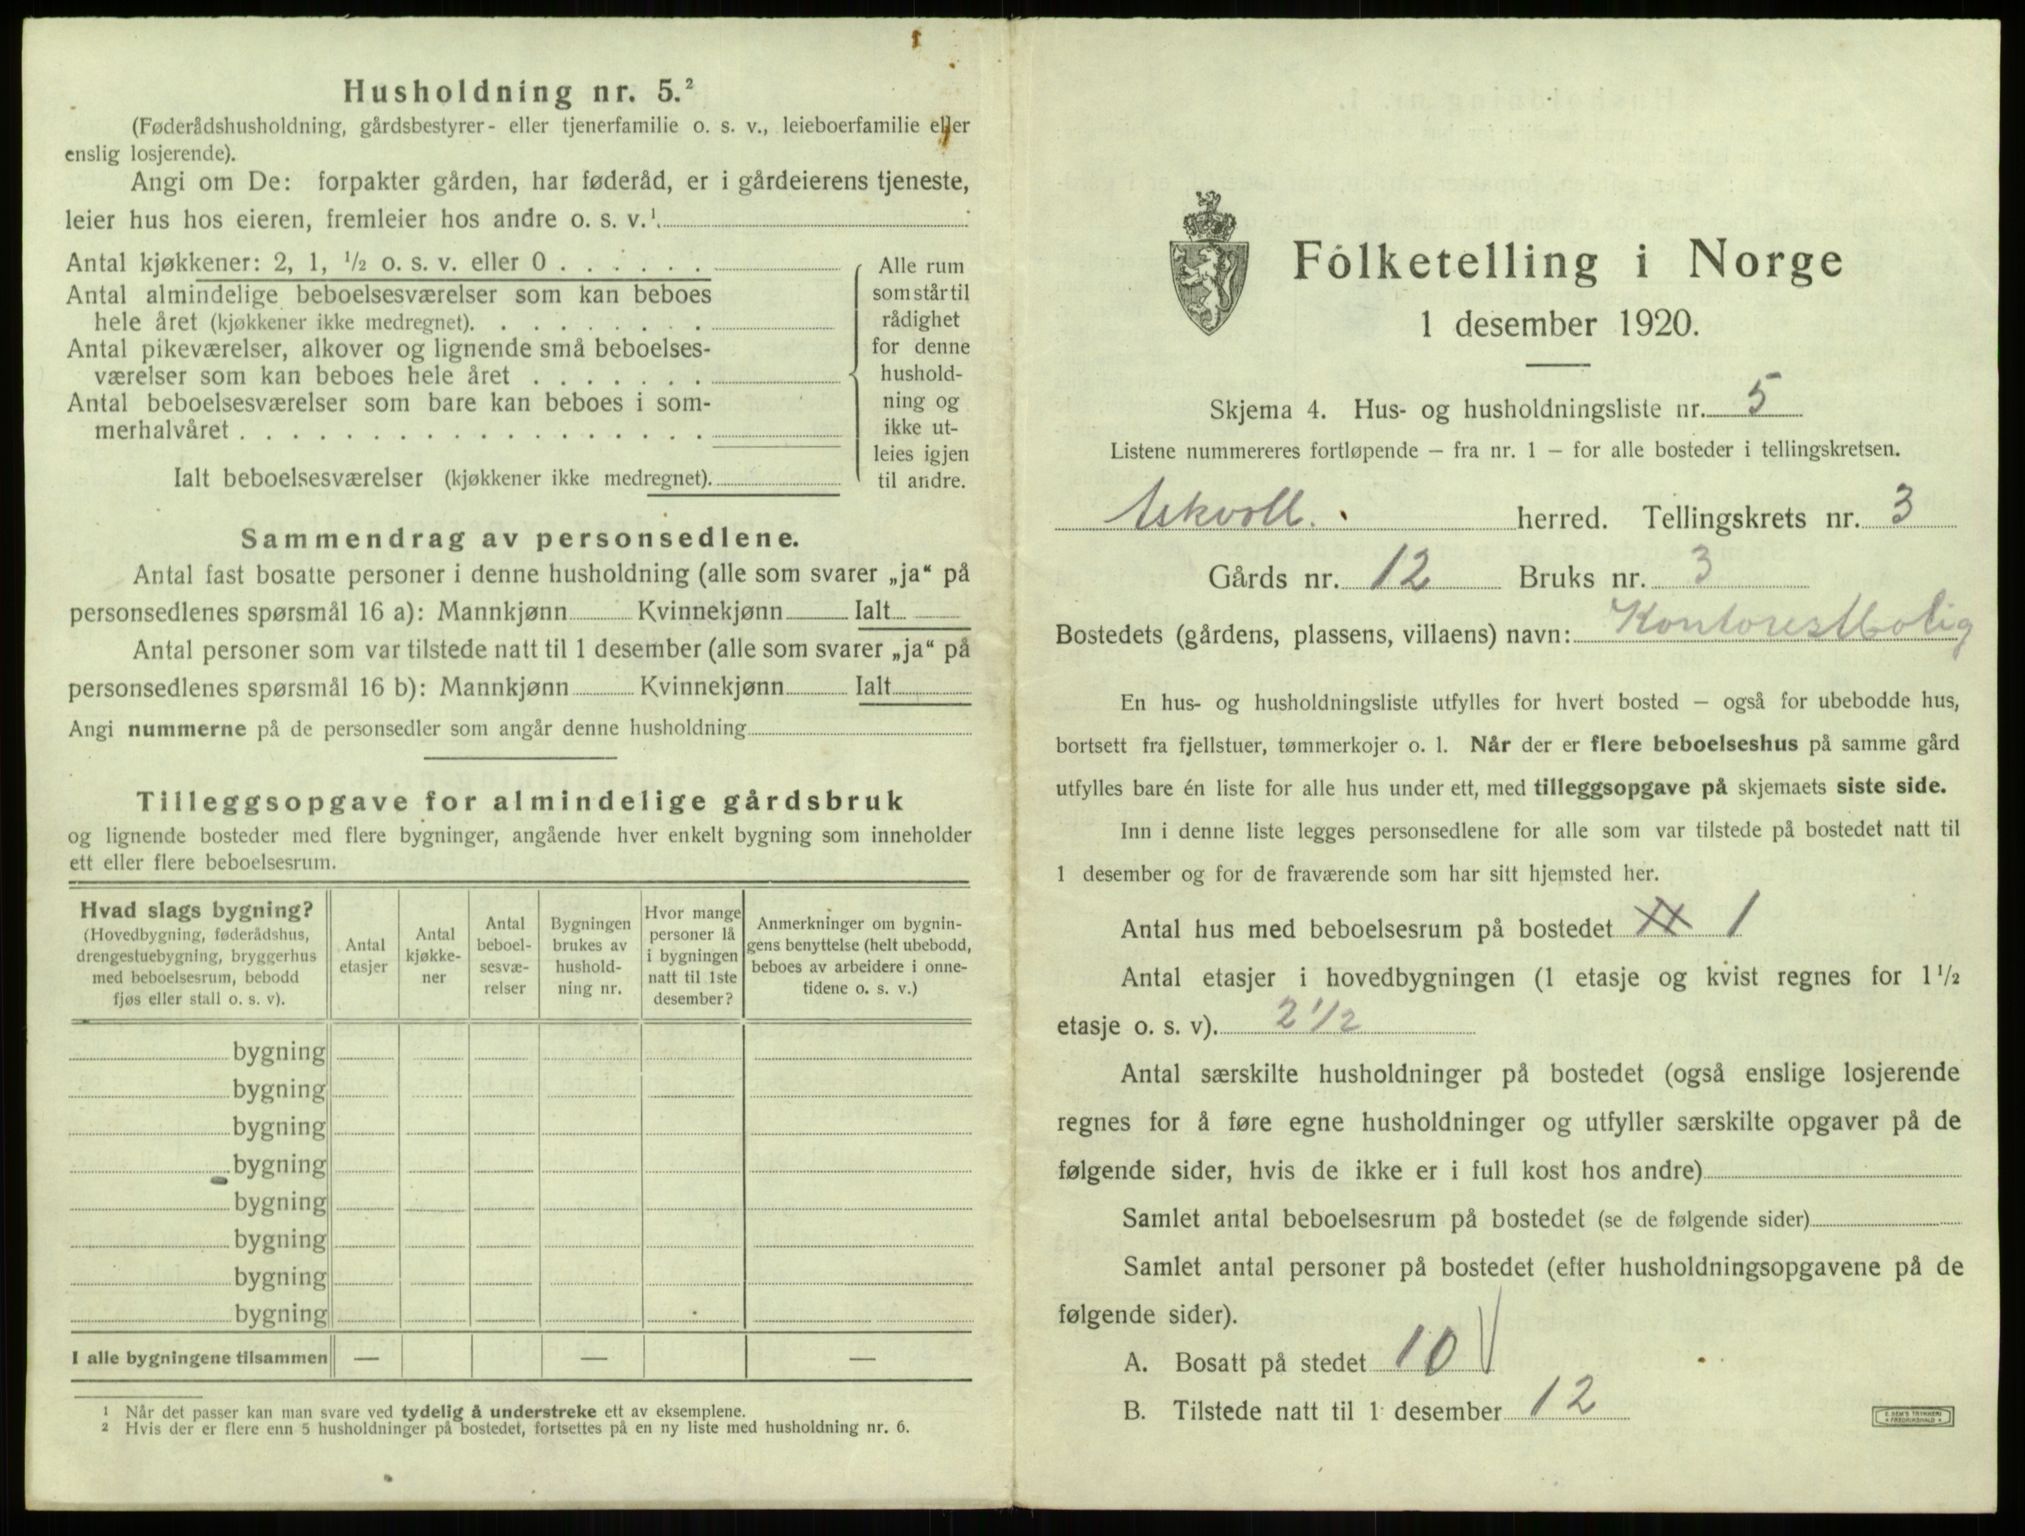 Husholdning nr. 5.²
(Føderådshusholdning, gårdsbestyrer- eller tjenerfamilie o. s. v., leieboerfamilie eller
enslig losjerende).
Angi om De: forpakter gården, har føderåd, er i gårdeierens tjeneste,
leier hus hos eieren, fremleier hos andre o. s. v.¹
Antal kjøkkener: 2, 1, ½ o. s. v. eller 0 . . . . . .
Antal almindelige beboelsesværelser som kan beboes
hele året (kjøkkener ikke medregnet). . . . . . . . .
Antal pikeværelser, alkover og lignende små beboelses-
værelser som kan beboes hele året . . . . . . .
Antal beboelsesværelser som bare kan beboes i som-
merhalvåret . . . . . . . . . . . . . . . . . .
Ialt beboelsesværelser (kjøkkener ikke medregnet).
Alle rum
som står til
rådighet
for denne
hushold-
ning og
ikke ut-
leies igjen
til andre.
Sammendrag av personsedlene.
Antal fast bosatte personer i denne husholdning (alle som svarer „ja“ på
personsedlenes spørsmål 16 a): Mannkjønn Kvinnekjønn Ialt
Antal personer som var tilstede natt til 1 desember (alle som svarer „ja“ på
personsedlenes spørsmål 16 b): Mannkjønn Kvinnekjønn Ialt
Angi nummerne på de personsedler som angår denne husholdning
Tilleggsopgave for almindelige gårdsbruk
og lignende bosteder med flere bygninger, angående hver enkelt bygning som inneholder
ett eller flere beboelsesrum.
Hvad slags bygning?
(Hovedbygning, føderådshus,
drengestuebygning, bryggerhus
med beboelsesrum, bebodd
fjøs eller stall o. s. v).
Antal
etasjer
Antal
kjøkke-
ner
Antal
beboel-
sesvæ-
relser
Bygningen
brukes av
hushold-
ning nr.
Hvor mange
personer lå
i bygningen
natt til 1ste
desember?
Anmerkninger om bygnin-
gens benyttelse (helt ubebodd,
beboes av arbeidere i onne-
tidene o. s. v.)
bygning
bygning
bygning
bygning
bygning
bygning
bygning
bygning
I alle bygningene tilsammen — — —
¹ Når det passer kan man svare ved tydelig å understreke ett av eksemplene.
² Hvis der er flere enn 5 husholdninger på bostedet, fortsettes på en ny liste med husholdning nr. 6.
Folketelling i Norge
1 desember 1920.
Skjema 4. Hus- og husholdningsliste nr. 5
Listene nummereres fortløpende – fra nr. 1 – for alle bosteder i tellingskretsen.
Askvoll. herred. Tellingskrets nr. 3
Gårds nr. 12 Bruks nr. 3
Bostedets (gårdens, plassens, villaens) navn: Kontorestbolig
En hus- og husholdningsliste utfylles for hvert bosted – også for ubebodde hus,
bortsett fra fjellstuer, tømmerkojer o. l. Når der er flere beboelseshus på samme gård
utfylles bare én liste for alle hus under ett, med tilleggsopgave på skjemaets siste side.
Inn i denne liste legges personsedlene for alle som var tilstede på bostedet natt til
1 desember og for de fraværende som har sitt hjemsted her.
Antal hus med beboelsesrum på bostedet 1
Antal etasjer i hovedbygningen (1 etasje og kvist regnes for 1½
etasje o. s. v). 2 1/2
Antal særskilte husholdninger på bostedet (også enslige losjerende
regnes for å føre egne husholdninger og utfyller særskilte opgaver på de
følgende sider, hvis de ikke er i full kost hos andre)
Samlet antal beboelsesrum på bostedet (se de følgende sider)
Samlet antal personer på bostedet (efter husholdningsopgavene på de
følgende sider).
A. Bosatt på stedet 10
B. Tilstede natt til 1 desember 12